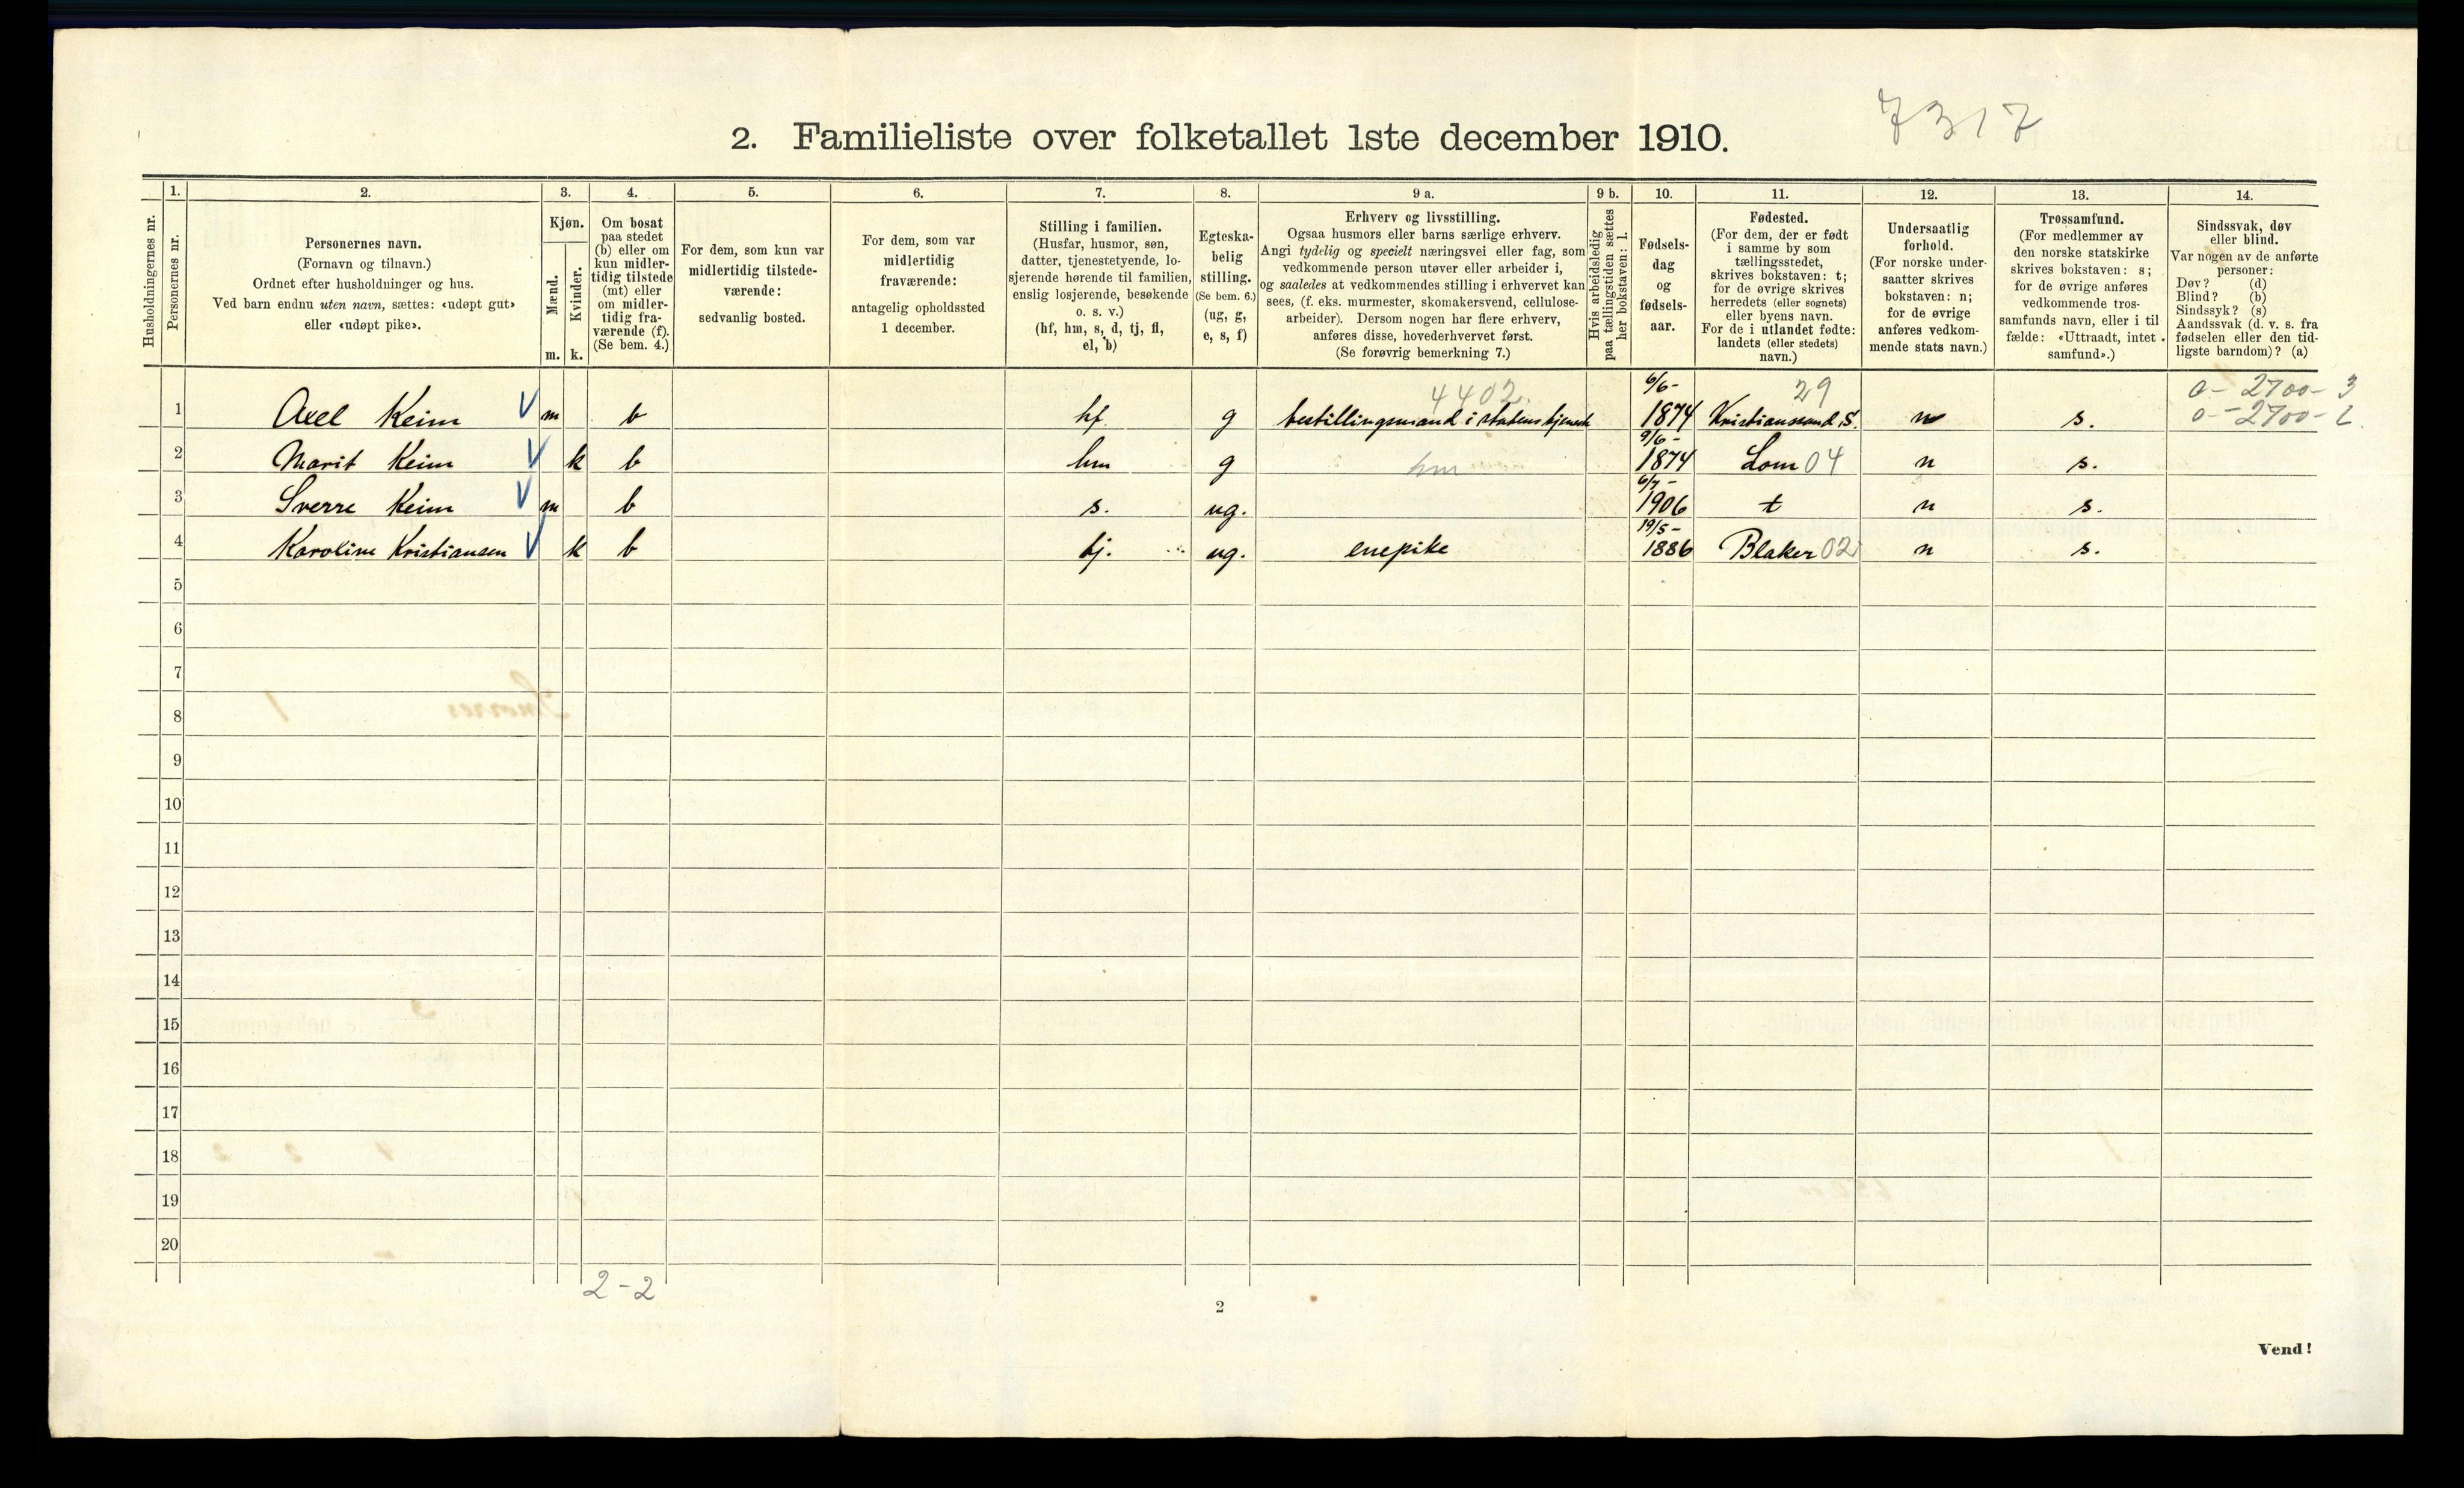 7317
2. Familieliste over folketallet 1ste december 1910.
1. 2. 3. 4. 5. 6. 7. 8. 9 a. 9 b. 10. 11. 12. 13. 14.
Husholdningernes nr.
Personernes nr.
Personernes navn.
(Fornavn og tilnavn.)
Ordnet efter husholdninger og hus.
Ved barn endnu uten navn, sættes: «udøpt gut»
eller «udøpt pike».
Kjøn.
Mænd.
Kvinder.
m. k.
Om bosat
paa stedet
(b) eller om
kun midler-
tidig tilstede
(mt) eller
om midler-
tidig fra-
værende (f).
(Se bem. 4.)
For dem, som kun var
midlertidig tilstede-
værende:
sedvanlig bosted.
For dem, som var
midlertidig
fraværende:
antagelig opholdssted
1 december.
Stilling i familien.
(Husfar, husmor, søn,
datter, tjenestetyende, lo-
sjerende hørende til familien,
enslig losjerende, besøkende
o. s. v.)
(hf, hm, s, d, tj, fl,
el, b)
Egteska-
belig
stilling.
(Se bem. 6.)
(ug, g,
e, s, f)
Erhverv og livsstilling.
Ogsaa husmors eller barns særlige erhverv.
Angi tydelig og specielt næringsvei eller fag, som
vedkommende person utøver eller arbeider i,
og saaledes at vedkommendes stilling i erhvervet kan
sees, (f. eks. murmester, skomakersvend, cellulose-
arbeider). Dersom nogen har flere erhverv,
anføres disse, hovederhvervet først.
(Se forøvrig bemerkning 7.)
Hvis arbeidsledig
paa tællingstiden sættes
her bokstaven: l.
Fødsels-
dag
og
fødsels-
aar.
Fødested.
(For dem, der er født
i samme by som
tællingsstedet,
skrives bokstaven: t;
for de øvrige skrives
herredets (eller sognets)
eller byens navn.
For de i utlandet fødte:
landets (eller stedets)
navn.)
Undersaatlig
forhold.
(For norske under-
saatter skrives
bokstaven: n;
for de øvrige
anføres vedkom-
mende stats navn.)
Trossamfund.
(For medlemmer av
den norske statskirke
skrives bokstaven: s;
for de øvrige anføres
vedkommende tros-
samfunds navn, eller i til-
fælde: «Uttraadt, intet
samfund».)
Sindssvak, døv
eller blind.
Var nogen av de anførte
personer:
Døv? (d)
Blind? (b)
Sindssyk? (s)
Aandssvak (d. v. s. fra
fødselen eller den tid-
ligste barndom)? (a)
4402. 6/6- 29 0-2700-3
1 Axel Keim V m b hf. g bestillingsmand i statens tjeneste 1874 Kristianssand S. n s. 0-2700-2.
9/6-
2 Marit Keim V k b hm g hm 1874 Lom 04 n s.
6/7-
3 Sverre Keim V m b s. ug. 1906 t n s.
19/5-
4 Karoline Kristiansen V k b tj. ug. enepike 1886 Blaker 02 n s.
5
6
7
8
9
10
11
12
13
14
15
16
17
18
19
20
2-2
2
Vend!